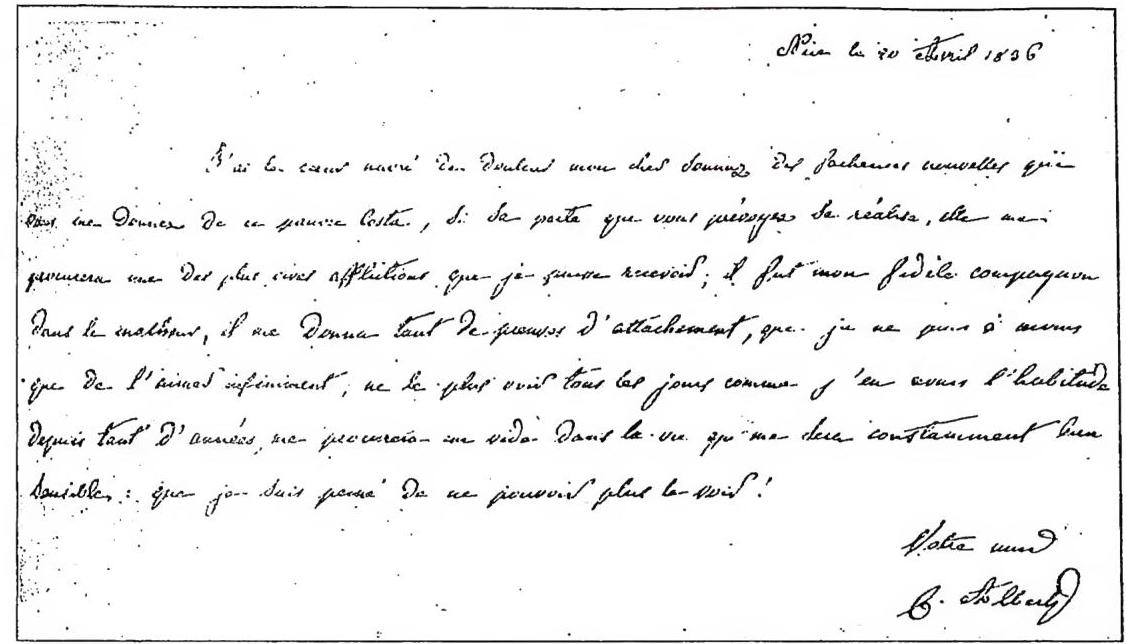 Nice le 20 Avril 1836
J'ai le cœur navré de douleur mon cher des facheuses nouvelles que
vous me donnez de ce pauvre Costa, si sa perte que vous prévoyez se réalise, elle me
procurera une des plus vives afflictions que je puisse recevoir; il fut mon fidèle compagnon
dans le malheur, il me donna tant de preuves d'attachement, que je ne puis à moins
que de l'aimer infiniment, ne le plus voir tous les jours comme j'en avais l'habitude
depuis tant d'années, me procurera un vide dans la vie qui me sera constamment bien
sensible: que je suis peiné de ne pouvoir plus le voir!
Votre
C.